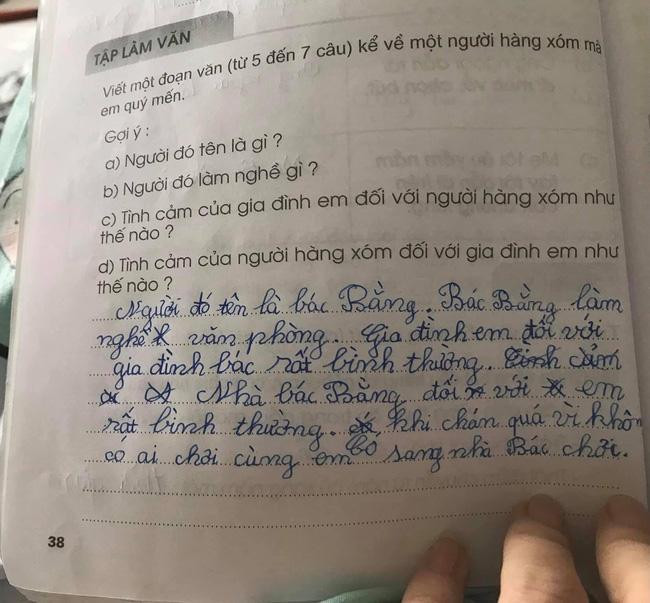 TẬP LÀM VĂN
Viết một đoạn văn (từ 5 đến 7 câu) kể về một người hàng xóm mà
em quý mến.
Gợi ý :
a) Người đó tên là gì ?
b) Người đó làm nghề gì ?
c) Tình cảm của gia đình em đối với người hàng xóm như
thế nào ?
d) Tình cảm của người hàng xóm đối với gia đình em như
thế nào ?
Người đó tên là bác Bằng. Bác Bằng làm
nghề văn phòng. Gia đình em đối với
gia đình bác rất bình thường. Tình cảm
Nhà bác Bằng đối với em
rất bình thường. khi chán quá vì khôn
có ai chơi cùng em bố sang nhà Bác chơi.
38